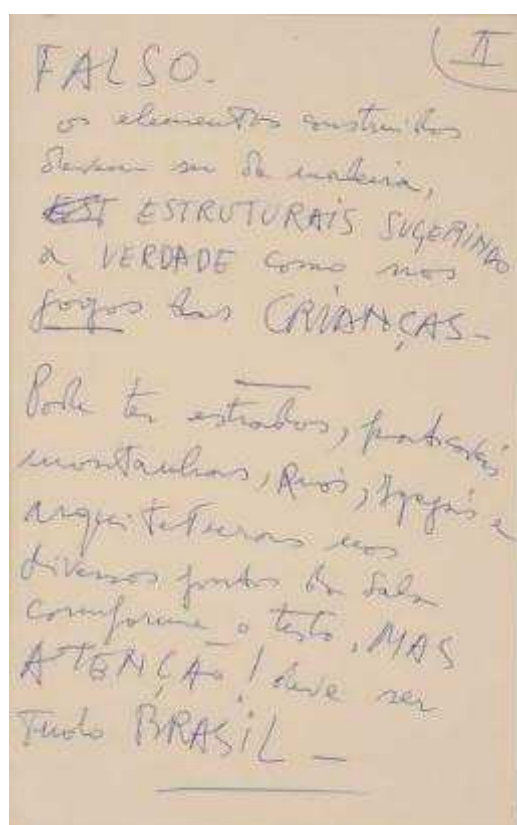 II
FALSO.
os elementos construidos
devem ser de madeira,
EST ESTRUTURAIS SUGERINDO
a VERDADE como nos
jogos das CRIANÇAS-
Pode ter estrados, praticáveis
montanhas, Rios, e
arquiteturas nos
diversos pontos da Sala
conforme o texto, MAS
ATENÇÃO! deve ser
Tudo BRASIL -